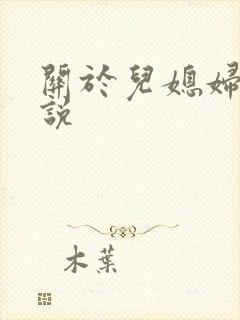 關於兒媳婦
說
木葉